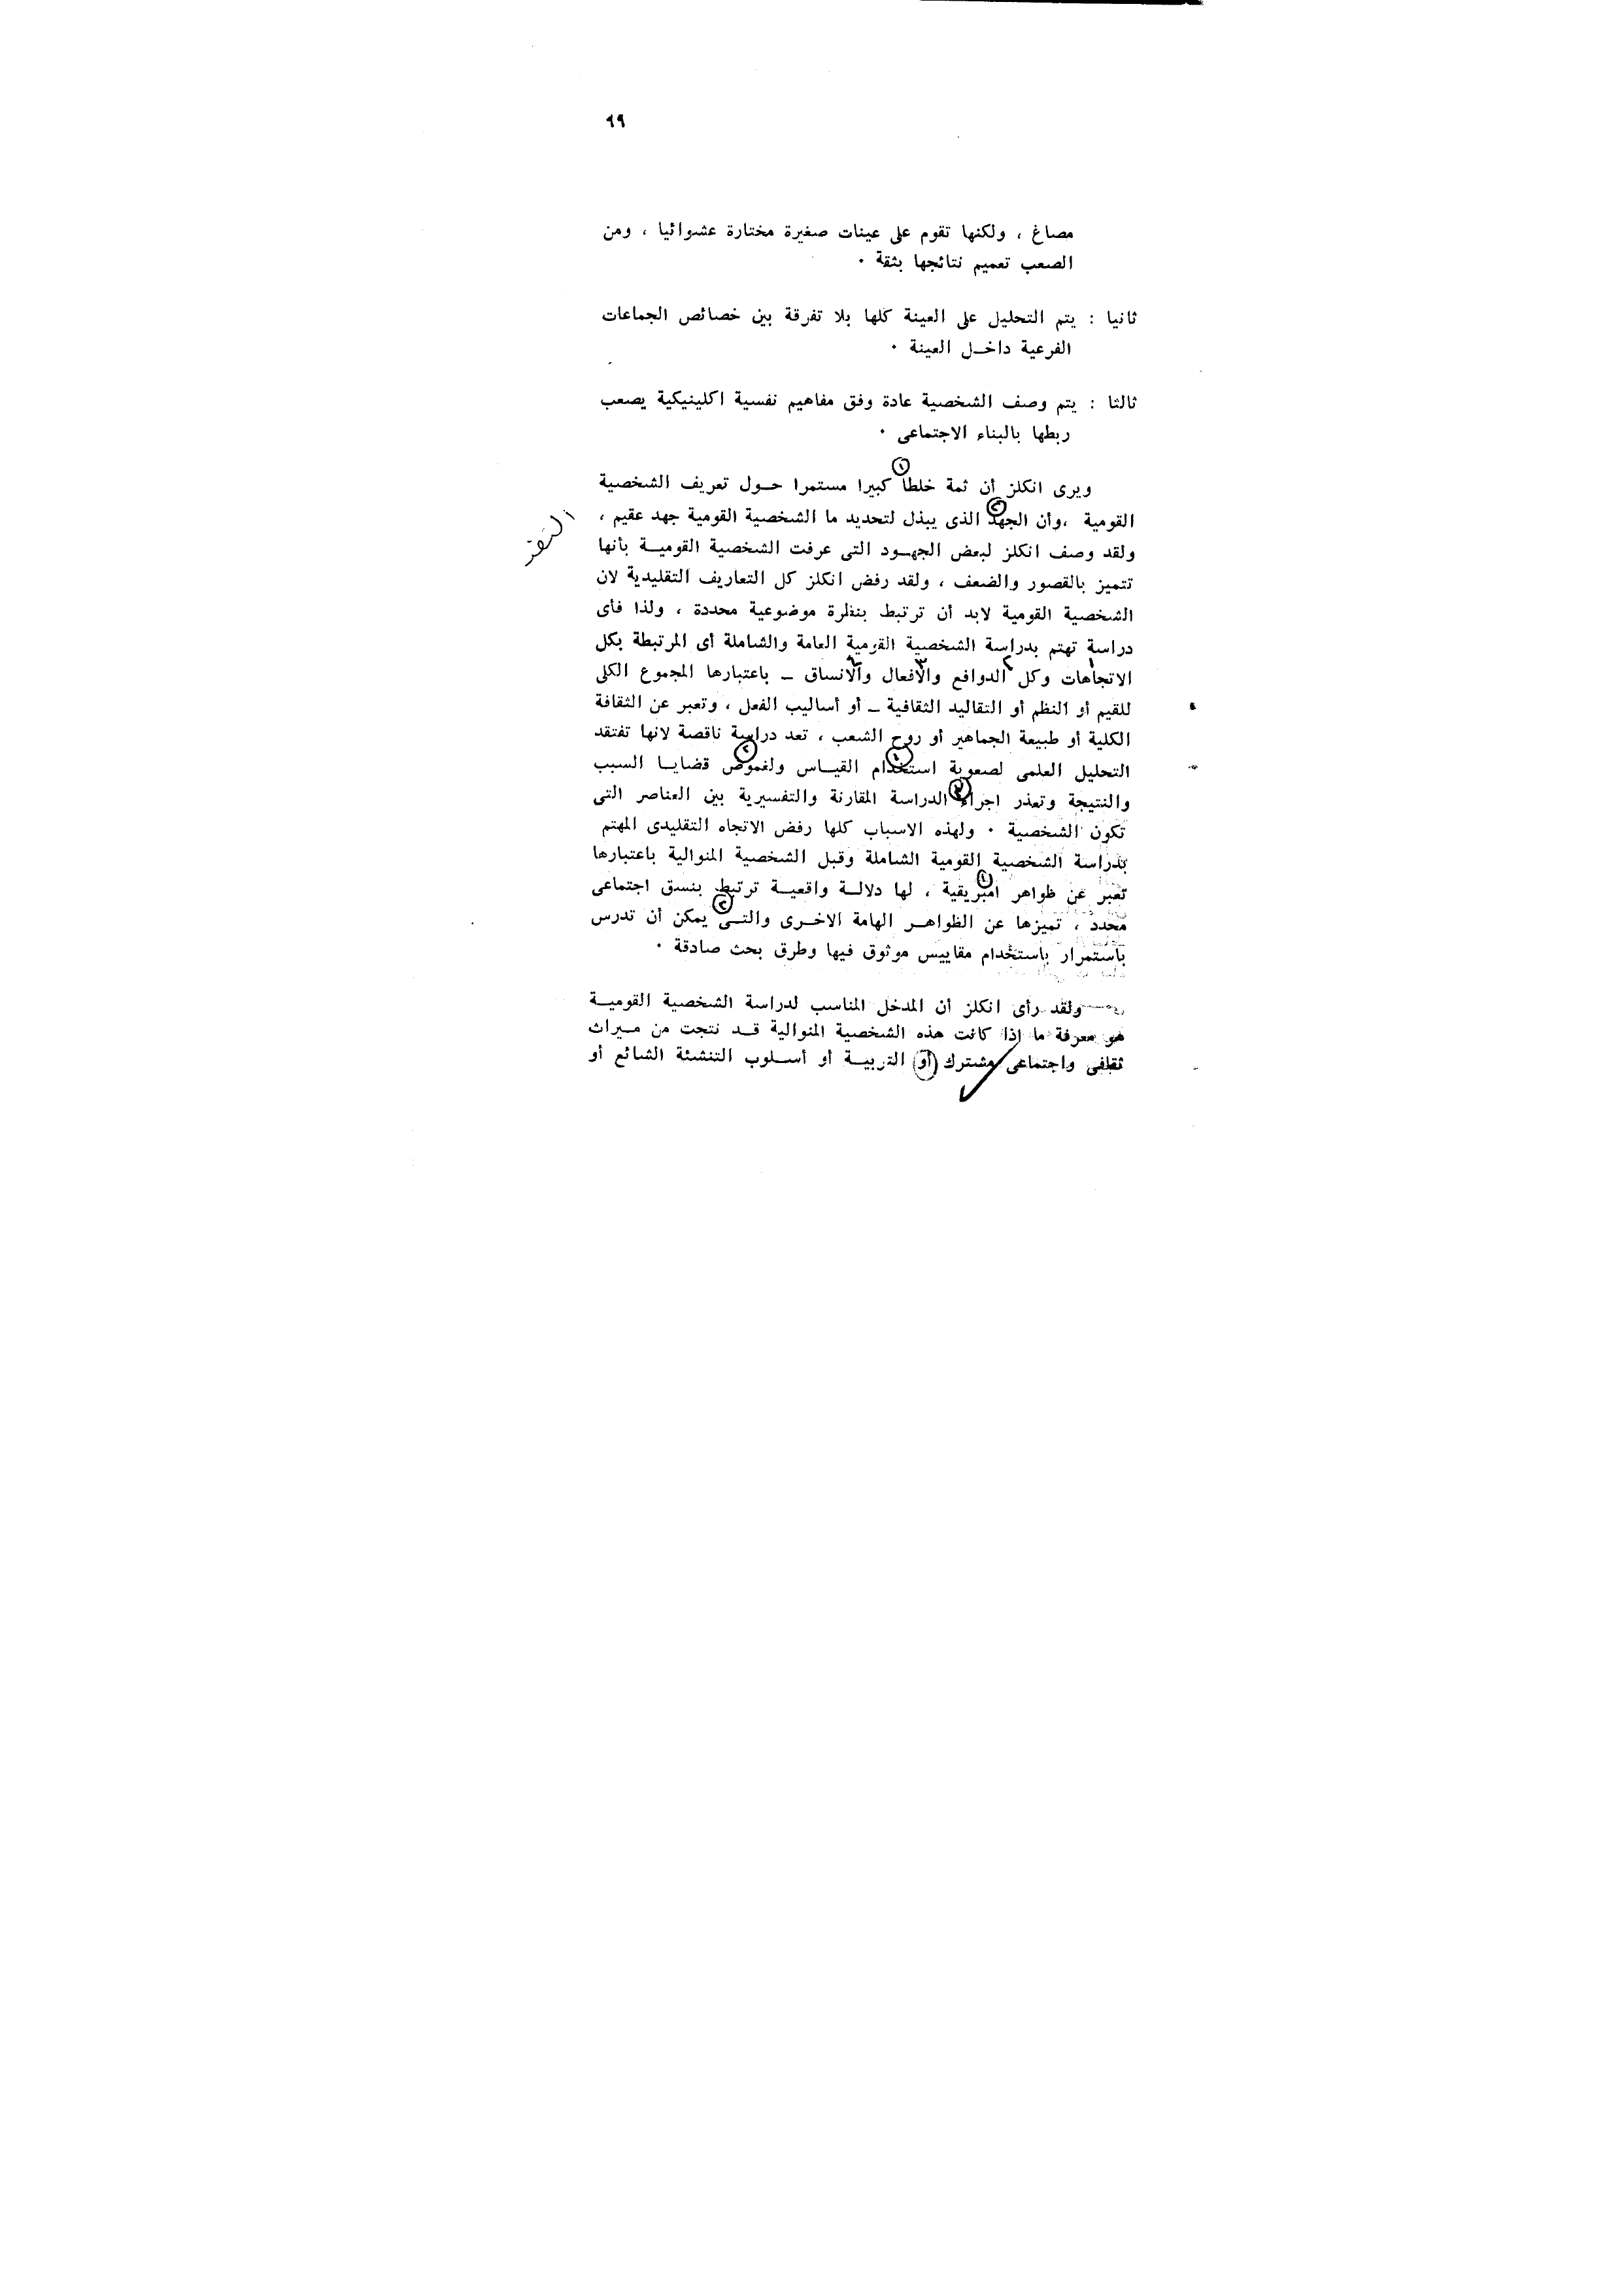 ١٩
مصاغ ، ولكنها تقوم على عينات صغيرة مختارة عشوائيا ، ومن
الصعب تعميم نتائجها بثقة ٠
ثانيا : يتم التحليل على العينة كلها بلا تفرقة بين خصائص الجماعات
الفرعية داخـل العينة ٠
ثالثا : يتم وصف الشخصية عادة وفق مفاهيم نفسية اكلينيكية يصعب
ربطها بالبناء الاجتماعى ٠
ويرى انكلز أن ثمة خلطا كبيرا مستمرا حـول تعريف الشخصية
القومية ،وأن الجهد الذى يبذل لتحديد ما الشخصية القومية جهد عقيم ،
ولقد وصف انكلز لبعض الجهـود التى عرفت الشخصية القوميـة بأنها
تتميز بالقصور والضعف ، ولقد رفض انكلز كل التعاريف التقليدية لان
الشخصية القومية لابد أن ترتبط بنظرة موضوعية محددة ، ولذا فأى
دراسة تهتم بدراسة الشخصية القومية العامة والشاملة أى المرتبطة بكل
الاتجاهات وكل الدوافع والافعال والانساق ـ باعتبارها المجموع الكلى
للقيم أو النظم أو التقاليد الثقافية ـ أو أساليب الفعل ، وتعبر عن الثقافة
الكلية أو طبيعة الجماهير أو روح الشعب ، تعد دراسة ناقصة لانها تفتقد
التحليل العلمى لصعوبة استخدام القيـاس ولغموض قضايـا السبب
والنتيجة وتعذر اجراء الدراسة المقارنة والتفسيرية بين العناصر التى
تكون الشخصية ٠ ولهذه الاسباب كلها رفض الاتجاه التقليدى المهتم
بدراسة الشخصية القومية الشاملة وقبل الشخصية المنوالية باعتبارها
تعبر عن ظواهر امبريقية ، لها دلالـة واقعيـة ترتبط بنسق اجتماعى
محدد ، تميزها عن الظواهـر الهامة الاخـرى والتـى يمكن أن تدرس
باستمرار باستخدام مقاييس موثوق فيها وطرق بحث صادقة ٠
ولقد رأى انكلز أن المدخل المناسب لدراسة الشخصية القوميـة
هو معرفة ما إذا كانت هذه الشخصية المنوالية قـد نتجت من مـيراث
ثقافى واجتماعى مشترك أو التربيـة أو أسـلوب التنشئة الشائع أو